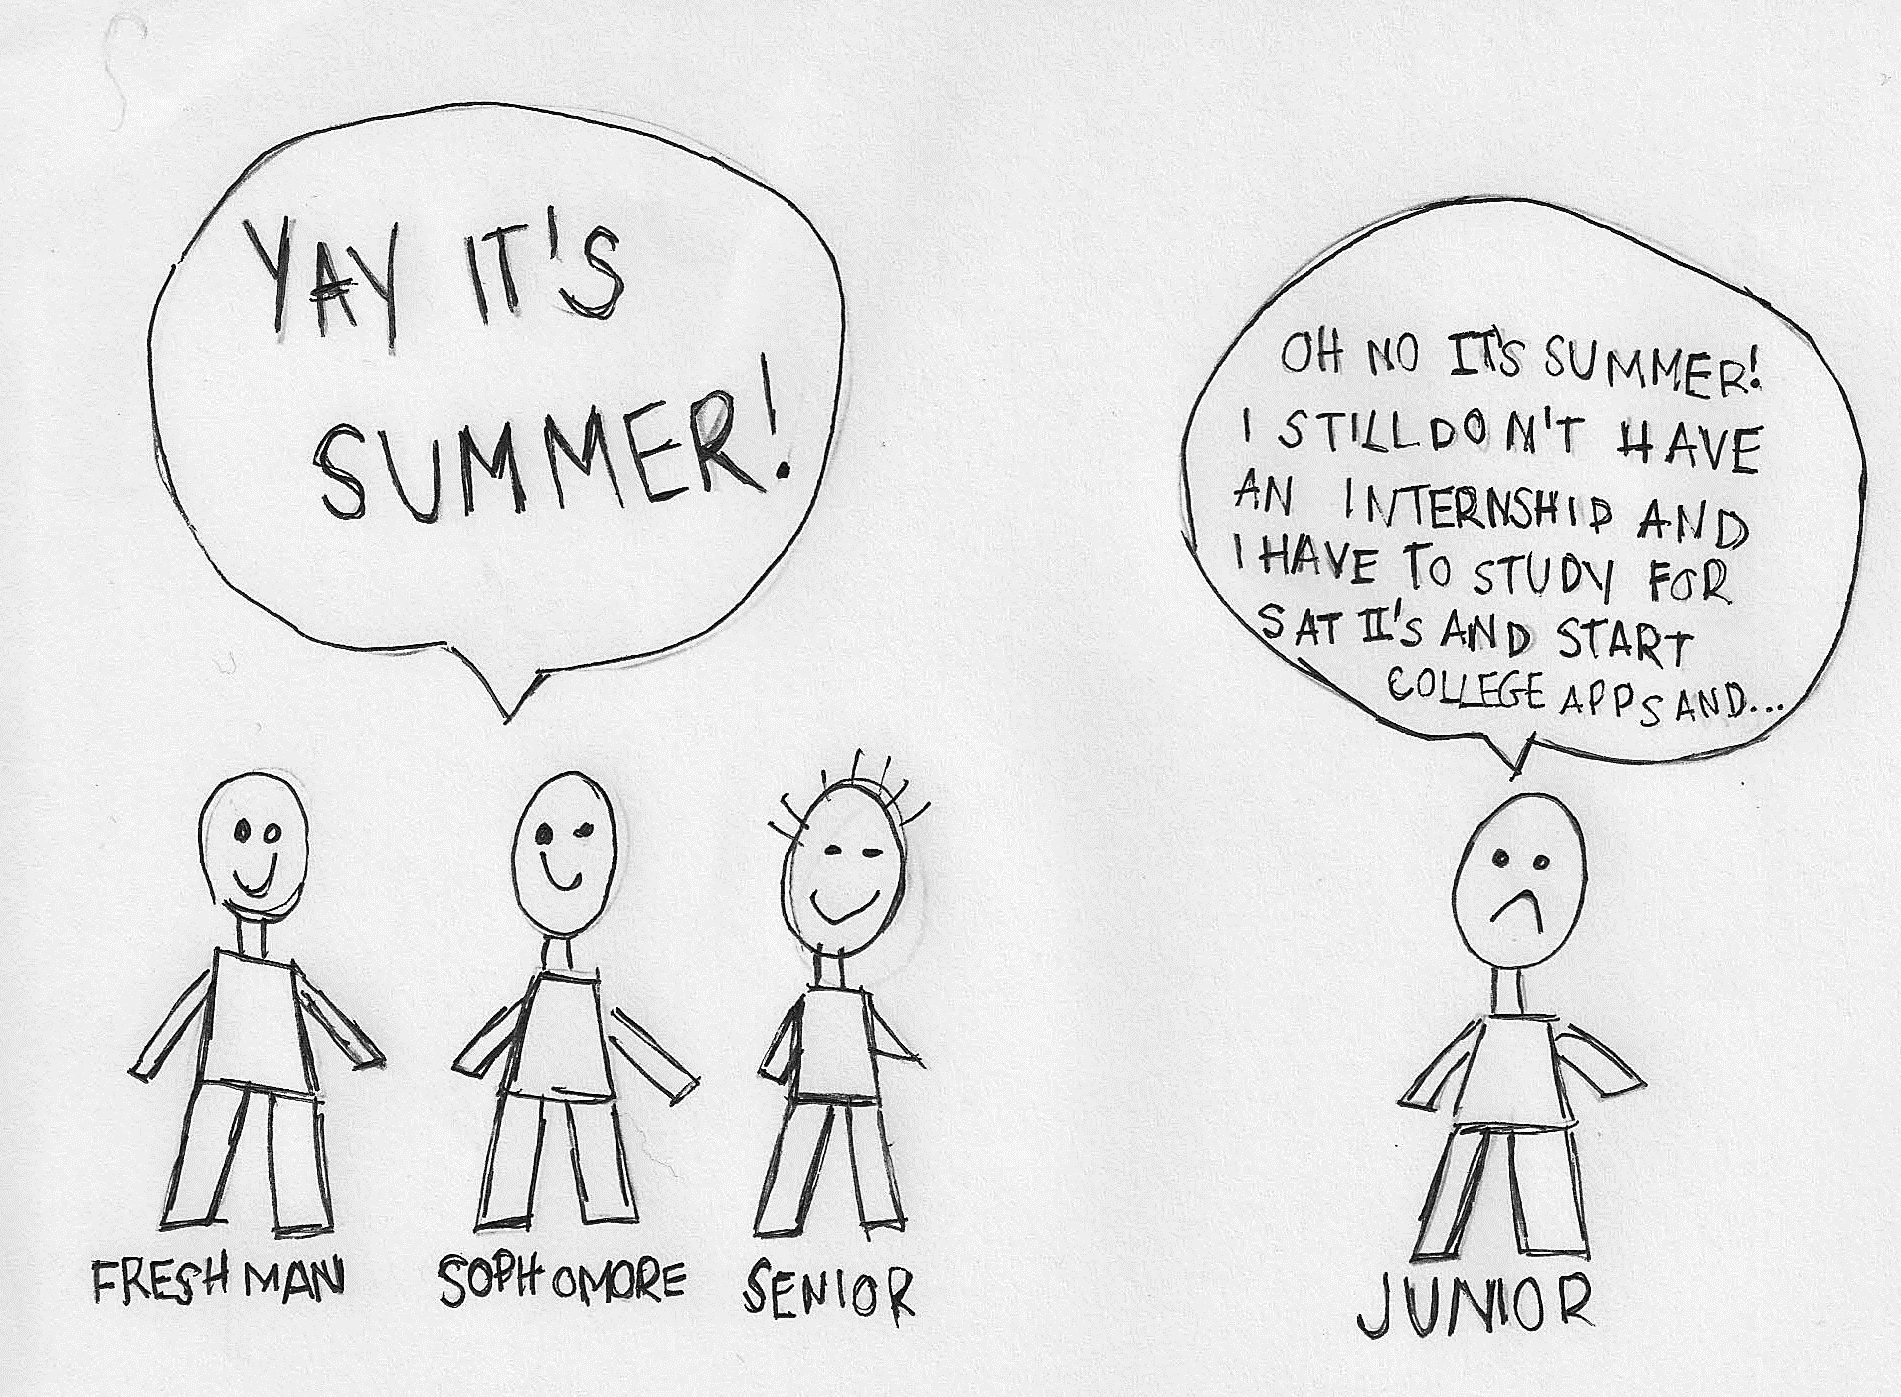 YAY IT'S
SUMMER!
OH NO IT'S SUMMER!
I STILL DON'T HAVE
AN INTERNSHIP AND
I HAVE TO STUDY FOR
SAT II'S AND START
COLLEGE APPS AND...
FRESHMAN
SOPHOMORE
SENIOR
JUNIOR